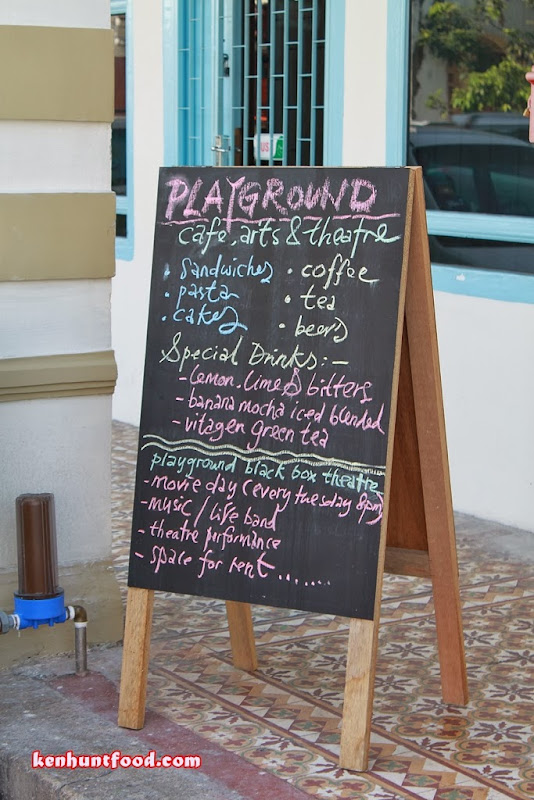 PLAYGROUND
cafe, arts & theatre
• Sandwiches
• pasta
• cakes
• coffee
• tea
• beers
Special Drinks:-
- Lemon.lime & bitters
- banana mocha iced blended
- vitagen green tea
playground black box theatre
- movie day (every tuesday 8pm)
- MUSIC / Life band
- theatre performance
- space for rent .......
kenhuntfood.com